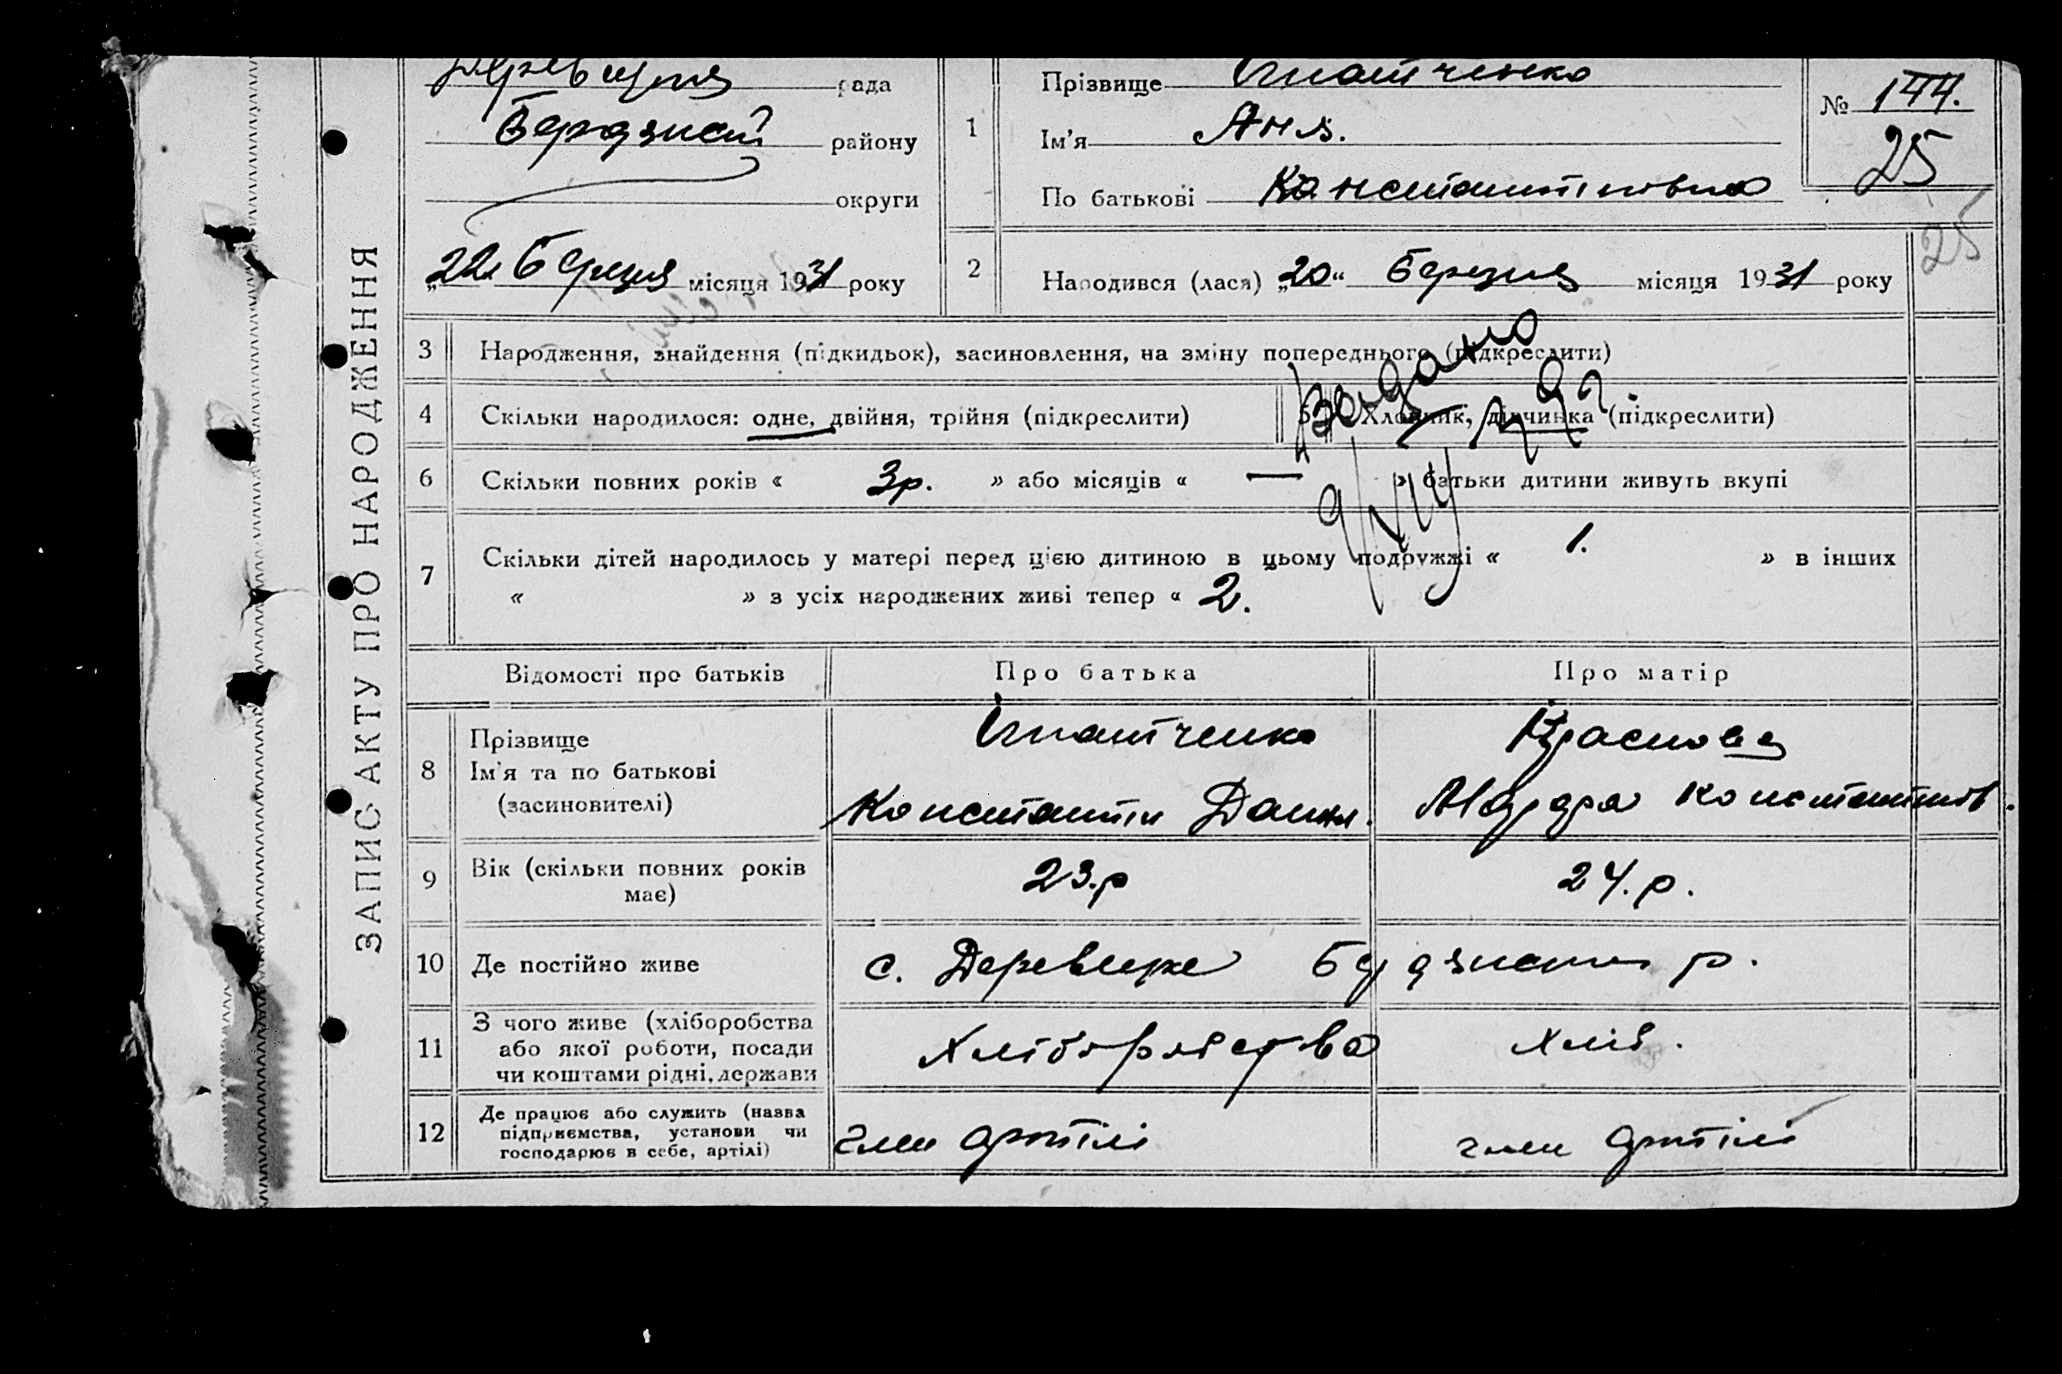 рада
району
округи
„22“ Березня місяця 1931 року
ЗАПИС АКТУ ПРО НАРОДЖЕННЯ
1
Прізвище Ігнатченко
Ім'я Аня.
По батькові Константіновна
№ 144.
25
25
2 Народився (лася) „20“ Березня місяця 1931 року
3 Народження, знайдення (підкидьок), засиновлення, на зміну попереднього (підкреслити)
4 Скільки народилося: одне, двійня, трійня (підкреслити) 5 Хлопчик, дівчинка (підкреслити)
6 Скільки повних років « 3р. » або місяців « — » батьки дитини живуть вкупі
7 Скільки дітей народилось у матері перед цією дитиною в цьому подружжі « 1. » в інших
« » з усіх народжених живі тепер « 2.
Відомості про батьків Про батька Про матір
8 Прізвище
Ім'я та по батькові
(засиновителі)
Ігнатченко
Константін Данил.
Краснова
Константінов.
9 Вік (скільки повних років
має)
23.р
24.р.
10 Де постійно живе с. р.
11 З чого живе (хліборобства
або якої роботи, посади
чи коштами рідні, держави
Хліборобства
Хліб.
12 Де працює або служить (назва
підприємства, установи чи
господарює в себе, артілі)
член артілі
член артілі